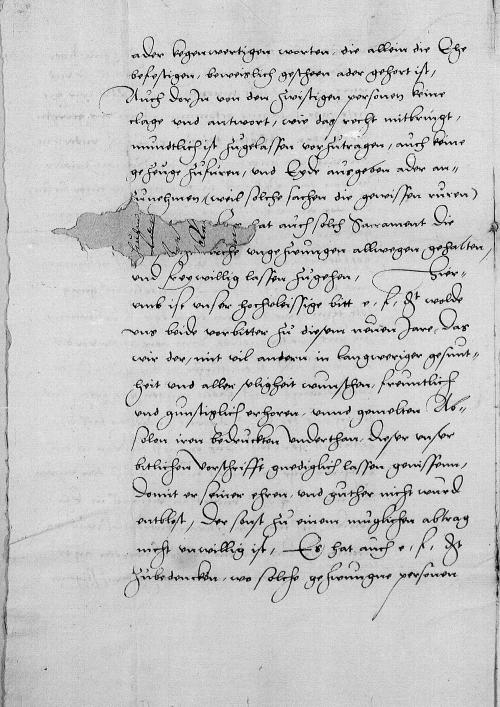 ader kegenwertigen worten, die allein die Ehe
befestigen, beweislich gescheen ader gehort ist,
Auch dorJn von den zwistigen personen keine
clage und antwort, wie das recht mitbringt,
mundtlich ist zugelassen vorzutragen, auch keine
gezeuge zufuren, und Eyde aufgeben ader an=
zunehmen (weil solche sachen die gewissen ruren)
hat auch solch Sacrament die
kirche ungezwungen allwegen gehalten,
und freywillig lassen zugehen, Hier=
umb ist unser hochvleissige bitt e. f. g. wolde
uns beide vorbitter zu diesem neuen Jare, das
wir der, mit vil andern in langweriger gesunt=
heit und aller seligheit wunschen, freuntlich
und gunstiglich erhoren, unnd gemelten Ab=
solon iren bedruckten underthan, dieser unser
bitlichen vorschrifft gnediglich lassen genissenn,
domit er seiner ehren, und guther nicht wurd
entblost, der sonst zu einem muglichen abtrag
nicht unwillig ist, Es hat auch e. f. g.
zubedencken, wo solche gezwungne personen